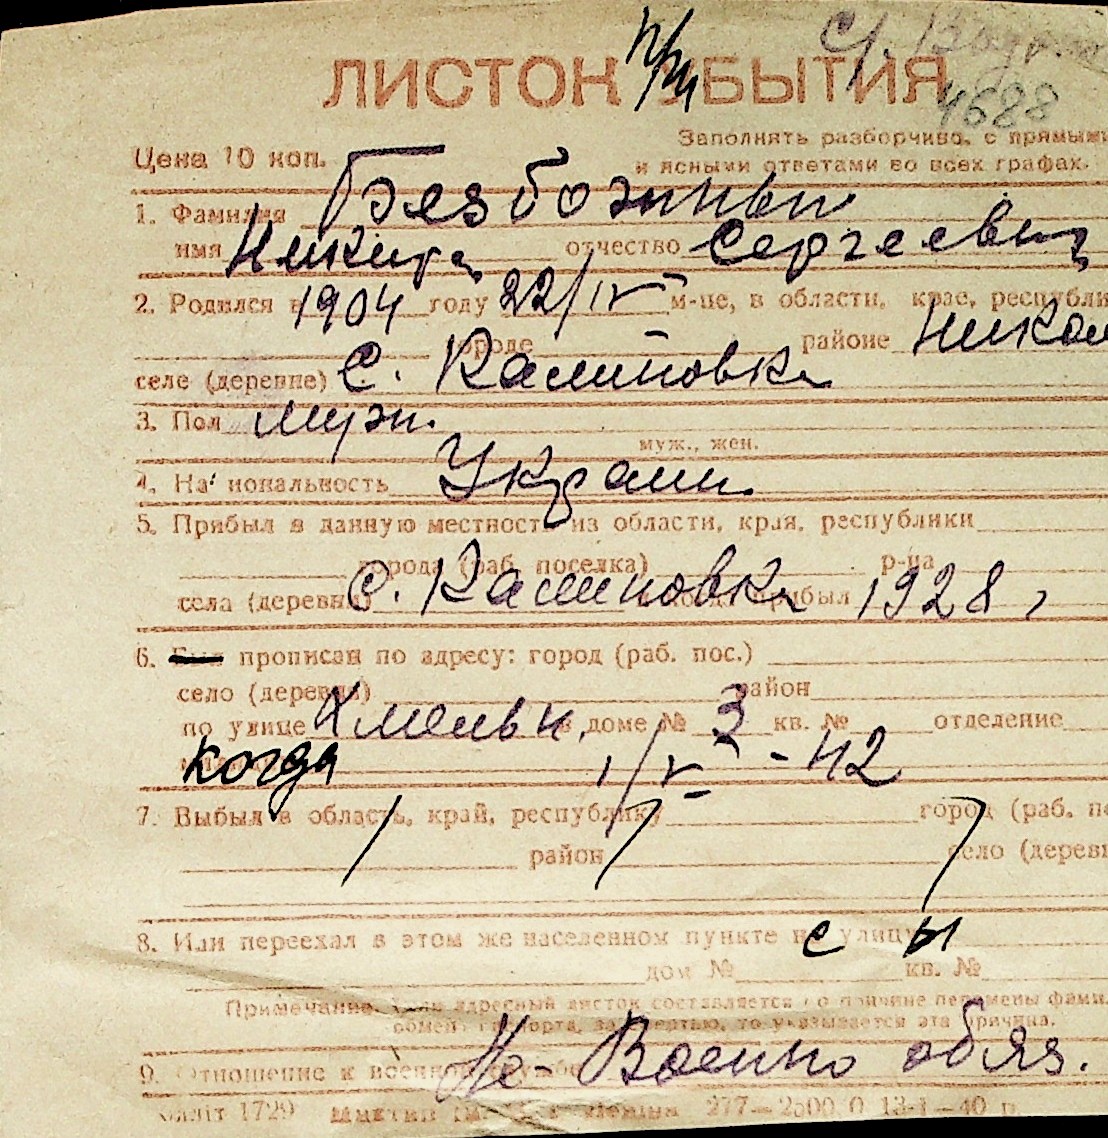 С/. Водя
при
4688
ЛИСТОК УБЫТИЯ
Заполнять разборчиво, с прямыми
Цена 10 коп.
и ясными ответами во всех графах.
1. Фамилия Безбожный
имя Никита отчество Сергеевич
2. Родился в 1904 году 22/IV м-це, в области, крае, республи
городе районе Никол
селе (деревне) С. Калиновка
3. Пол муж.
муж., жен.
4. Национальность Украин.
5. Прибыл в данную местность из области, края, республики
города (раб. поселка) р-на
села (деревни) с. Калиновка когда прибыл 1928 г
6. Был прописан по адресу: город (раб. пос.)
село (деревня) район
по улице в доме № 3 кв. № отделение
когда 1/V - 42
7. Выбыл в область, край, республику город (раб. по
район село (деревн
8. Или переехал в этом же населенном пункте с улицы
дом № кв. №
Примечание. Если адресный листок составляется по причине перемены фами
обмена паспорта, за смертью, то указывается эта причина.
9. Отношение к военной службе Не-Военно обяз.
1729 277—2500.0 13-I—40 р.